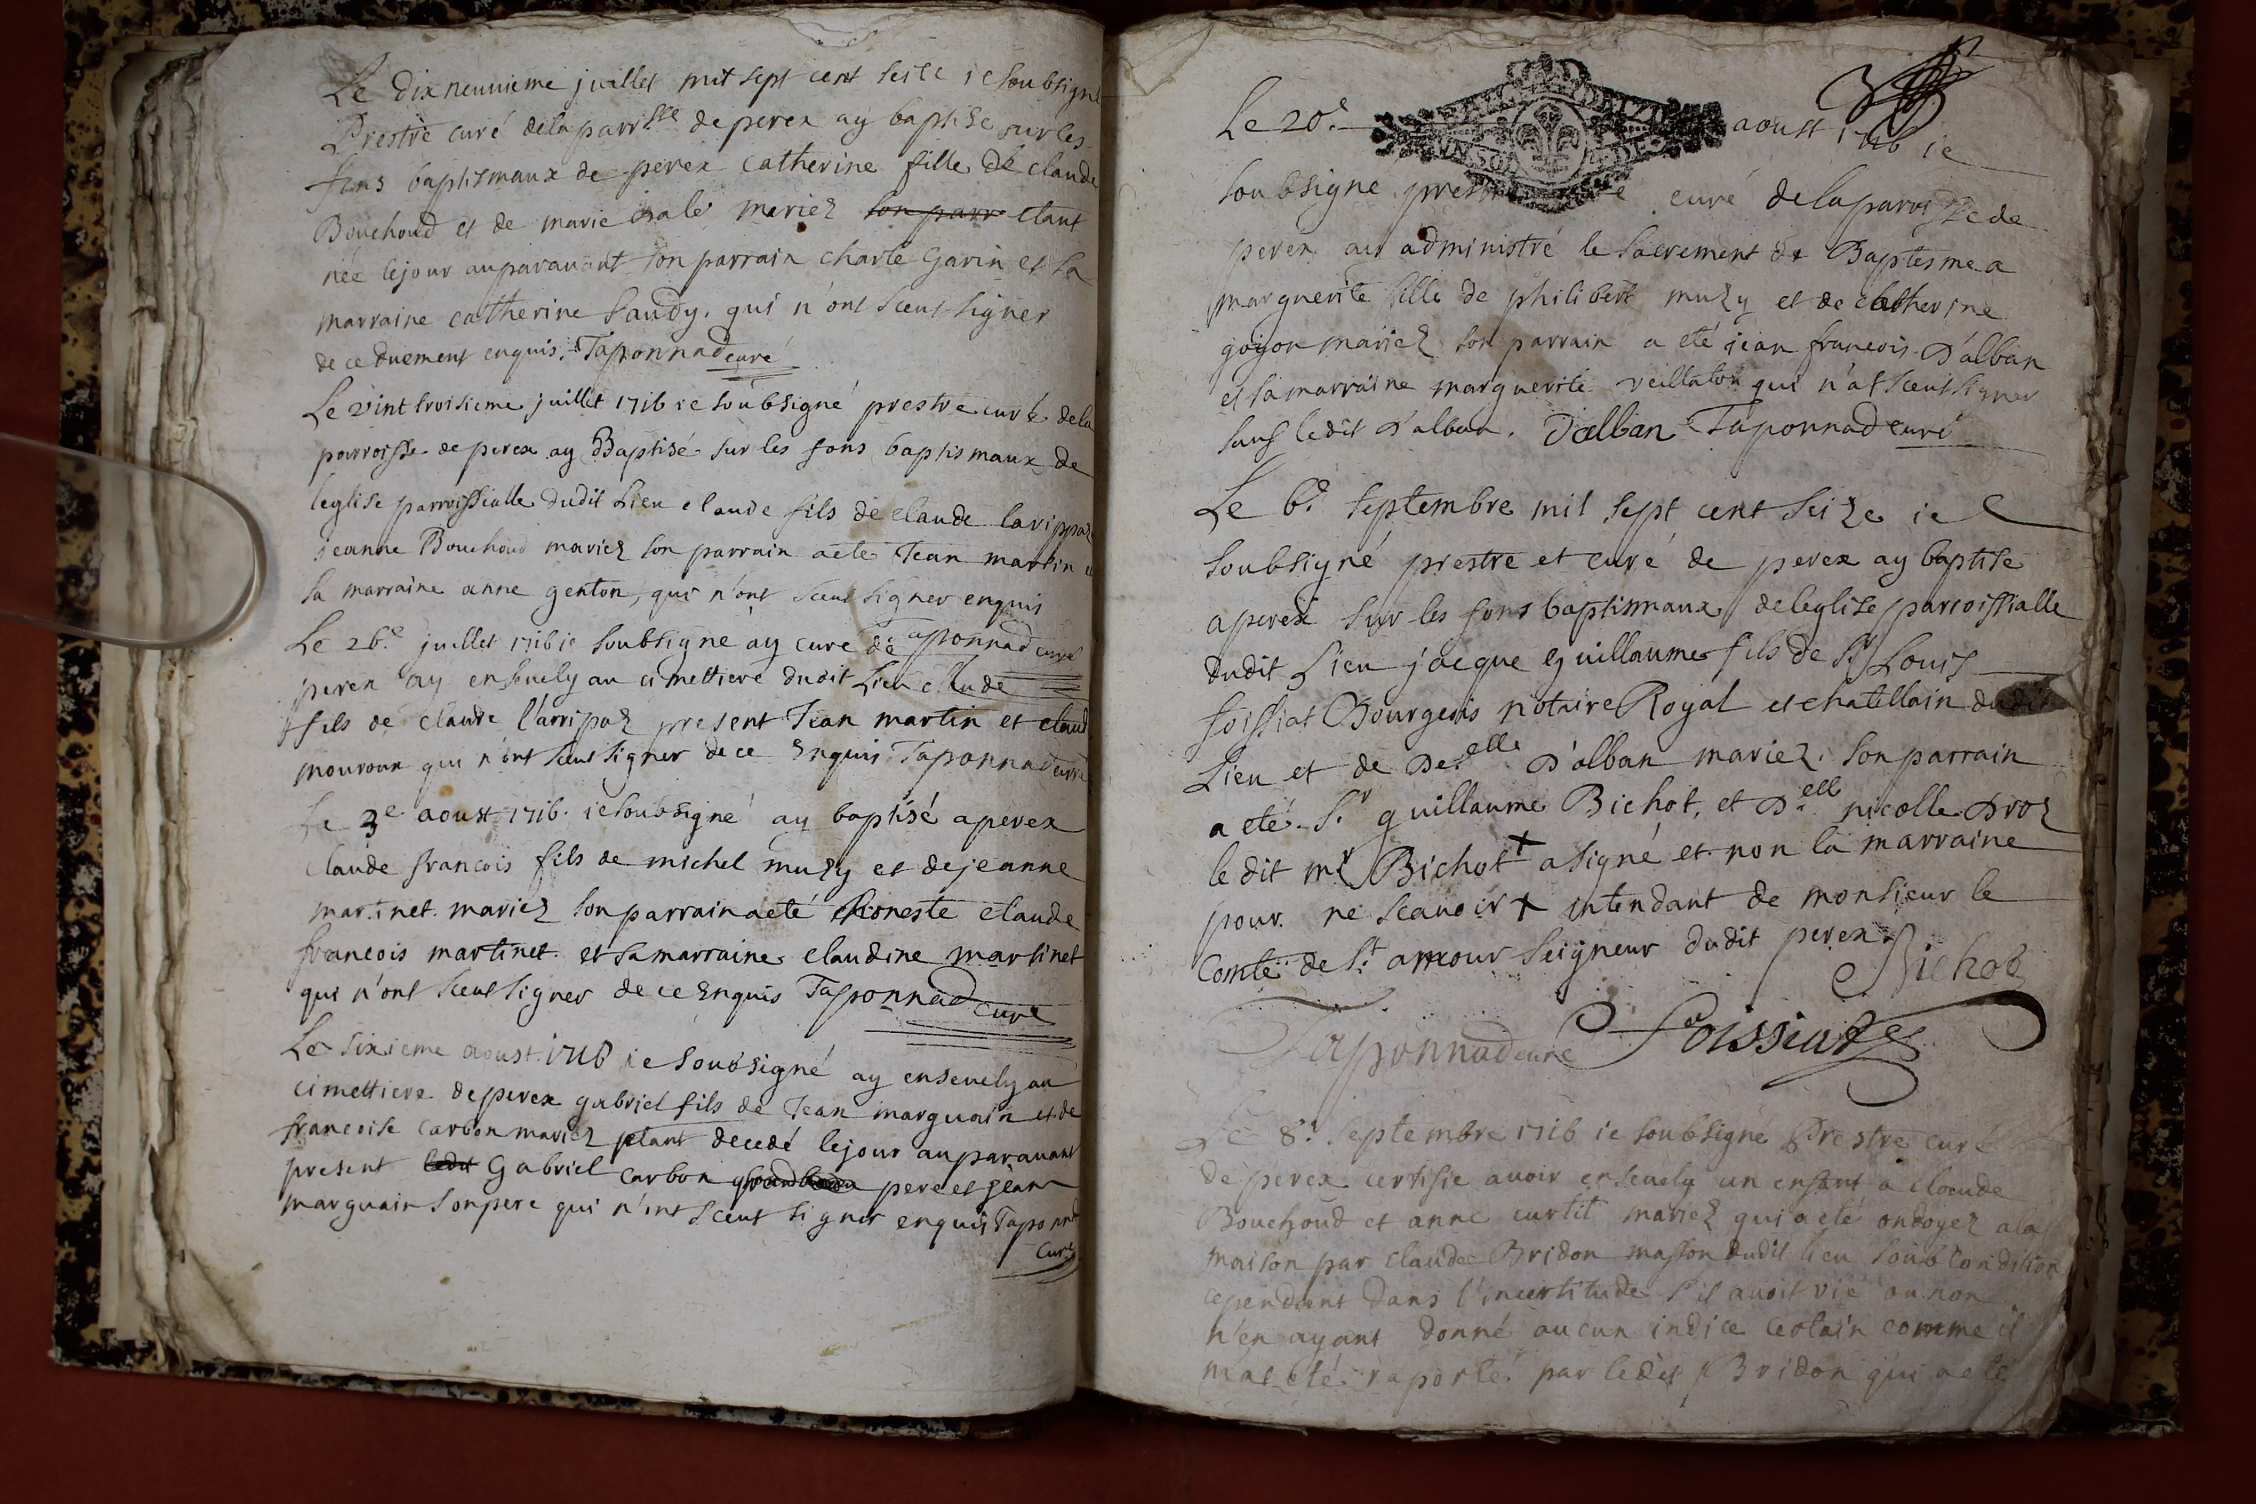 Le dixneuvieme juillet mil sept cent seise ie soubsigné
Prestre curé delaparr.sse deperex ay baptise sur les
fons baptismaux de perex catherine fille de claude
Bouchoud et de marie mariez son parr etant
née lejour auparavant son parrain charle Garin et sa
marraine catherine Laudy. qui n'ont sceut signer
de ce duement enquis. Taponnad curé
Le vint troisieme juillet 1716 ie soubsigné prestre curé dela
parroisse de perex ay Baptisé sur les fons baptismaux de
leglise parroissialle dudit Lieu claude fils de claude
jeanne Bouchoud mariez son parrain aeté Jean martin et
sa marraine anne genton, qui n'ont sceut signer enquis
Taponnad curé
Le 26.e juillet 1716 ie soubsigné ay curé de
perex ay ensevely au cimettiere dudit Lieu claude
fils de claude l'arripaz present Jean martin et claud
mouroux qui n'ont sceut signer de ce Enquis Taponnad curé
Le 3e aoust 1716. ie soubsigné ay baptisé aperex
claude francois fils de michel muzy et dejeanne
martinet mariez son parrain aeté honeste claude
francois martinet et samarraine claudine martinet
qui n'ont sceut signer de ce Enquis Taponnad
curé
Le sixieme aoust 1716 ie soubsigné ay ensevely au
cimettiere deperex gabriel fils de Jean marguain et de
francoise carbon mariez etant decedé lejour auparavant
present ledit Gabriel carbon pere et jean
marguain sonpere qui n'ont sceut signer enquis Taponnad
curé
Le 20.e aoust 1716 ie
soubsigné prestre curé delaparoisse de
perex ay administré le sacrement de Baptesme a
marguerite fille de philibert muzy et de catherine
goyon mariez son parrain a eté jean francois D'alban
et sa marraine marguerite qui n'at sceut signer
sauf ledit d'alban. Dalban Taponnad curé
Le 6.e septembre mil sept cent seize ie
soubsigné prestre et curé de perex ay baptise
aperex sur les fons baptismaux deleglise parroissialle
dudit Lieu jacque guillaume fils de Sr Louis
foissiat Bourgeois notaire Royal et chatellain dudit
Lieu et de De.elle D'alban mariez. son parrain
a eté. S.r guillaume Bichot, et D.elle nicolle Droz
le dit mr Bichot + asigné et non la marraine
pour ne scavoir + intendant de monsieur le
Comte de St amour seigneur dudit perex.
Bichot
Taponnad curé Foissiat
Le 8.e septembre 1716 ie soubsigné Prestre curé
de perex certifie avoir ensevely un enfant a claude
Bouchoud et anne curtil mariez qui aeté ondoyez ala
maison par claude Bridon masson dudit lieu soub condition
cependant dans l'incertitude s'il avoit vie ou non
n'en ayant donné aucun indice certain comme il
mat eté raporté par ledit Bridon qui aeté